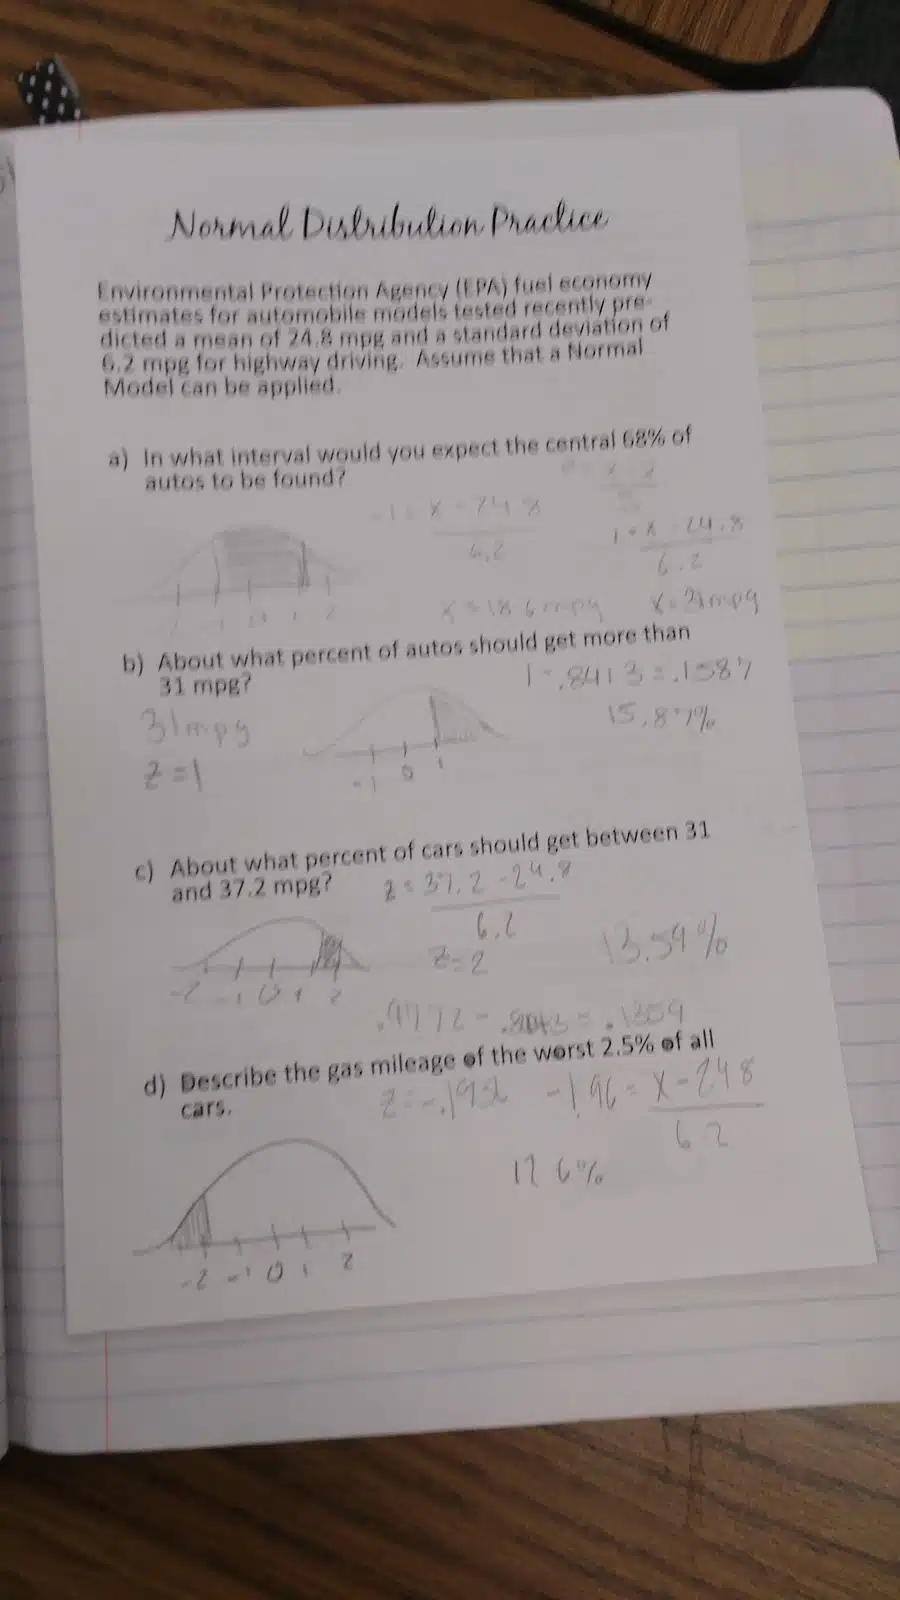 Normal Distribution Practice
Environmental Protection Agency (EPA) fuel economy
estimates for automobile models tested recently pre-
dicted a mean of 24.8 mpg and a standard deviation of
6.2 mpg for highway driving. Assume that a Normal
Model can be applied.
a) In what interval would you expect the central 68% of
autos to be found?
-1 = x - 24.8
6.2
1 = x - 24.8
6.2
x = 18.6 mpg
x = 31 mpg
-1 0 1 2
b) About what percent of autos should get more than
31 mpg?
1 - .8413 = .1587
31 mpg
15.87%
z = 1
-1 0 1
c) About what percent of cars should get between 31
and 37.2 mpg?
z = 37.2 - 24.8
6.2
z = 2
13.59%
-2 -1 0 1 2
.9772 - .8413 = .1359
d) Describe the gas mileage of the worst 2.5% of all
cars.
-1.96 = x - 24.8
6.2
12.6%
-2 -1 0 1 2